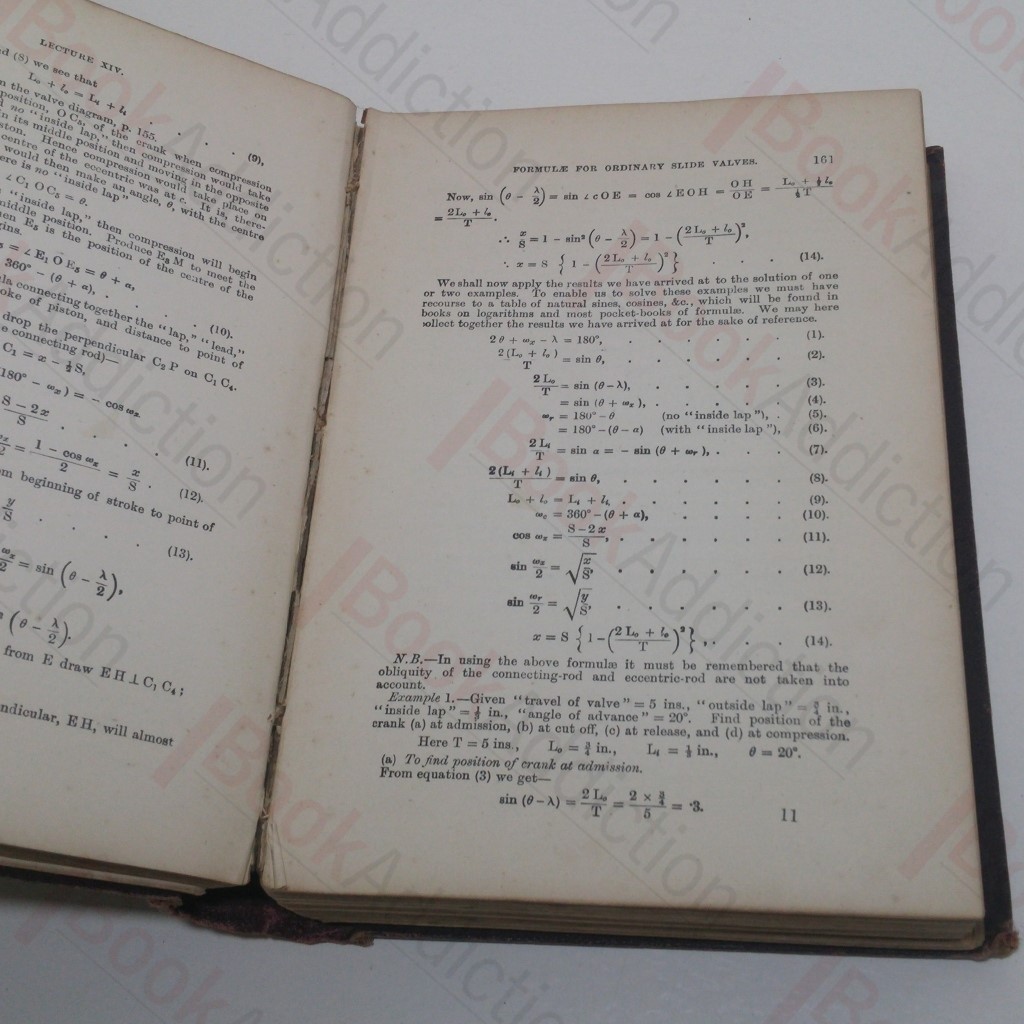 LECTURE XIV.
(8) we see that
L₀ + l₀ = L₁ + l₁ . . . (9),
the valve diagram, p. 155.
position, O C₅, of the crank when compression
no "inside lap," then compression would take
in its middle position and moving in the opposite
Hence compression would take place on
centre of the eccentric was at c. It is, there-
would then make an angle, θ, with the centre
there is no "inside lap"
∠ C₁ O C₅ = θ.
"inside lap," then compression will begin
middle position. Produce E₅ M to meet the
E₅ is the position of the centre of the
= ∠ E₁ O E₅ = θ + α,
360° − (θ + α), . . . (10).
connecting together the "lap," "lead,"
stroke of piston, and distance to point of
drop the perpendicular C₂ P on C₁ C₄.
connecting rod)—
C₁ = x − ½ S,
180° − ωₓ) = − cos ωₓ
S − 2x / S . . . (11).
= 1 − cos ωₓ / 2 = x / S . (12).
beginning of stroke to point of
y / S . . . (13).
ωₓ / 2 = sin (θ − λ/2),
(θ − λ/2).
from E draw E H ⊥ C₁ C₄ ;
E H, will almost
FORMULÆ FOR ORDINARY SLIDE VALVES. 161
Now, sin (θ − λ/2) = sin ∠ c O E = cos ∠ E O H = O H / O E = L₀ + ½ l₀ / ½ T
= 2 L₀ + l₀ / T .
∴ x/S = 1 − sin² (θ − λ/2) = 1 − (2 L₀ + l₀ / T)²,
∴ x = S { 1 − (2 L₀ + l₀ / T)² } . . . (14).
We shall now apply the results we have arrived at to the solution of one
or two examples. To enable us to solve these examples we must have
recourse to a table of natural sines, cosines, &c., which will be found in
books on logarithms and most pocket-books of formulæ. We may here
collect together the results we have arrived at for the sake of reference.
2 θ + ωₓ − λ = 180°, . . . . . . (1).
2 (L₀ + l₀) / T = sin θ, . . . . . . (2).
2 L₀ / T = sin (θ − λ), . . . . . (3).
= sin (θ + ωₓ), . . . . . (4).
ωᵣ = 180° − θ (no "inside lap"), . (5).
= 180° − (θ − α) (with "inside lap"), (6).
2 L₁ / T = sin α = − sin (θ + ωᵣ), . . . (7).
2 (L₁ + l₁) / T = sin θ, . . . . . . (8).
L₀ + l₀ = L₁ + l₁, . . . . . (9).
ω꜀ = 360° − (θ + α), . . . . . (10).
cos ωₓ = S − 2 x / S , . . . . . . (11).
sin ωₓ / 2 = √x/S, . . . . . . (12).
sin ωᵣ / 2 = √y/S, . . . . . . (13).
x = S { 1 − (2 L₀ + l₀ / T)² }, . . . . (14).
N.B.—In using the above formulæ it must be remembered that the
obliquity of the connecting-rod and eccentric-rod are not taken into
account.
Example 1.—Given "travel of valve" = 5 ins., "outside lap" = ¾ in.,
"inside lap" = in., "angle of advance" = 20°. Find position of the
crank (a) at admission, (b) at cut off, (c) at release, and (d) at compression.
Here T = 5 ins., L₀ = ¾ in., L₁ = in., θ = 20°.
(a) To find position of crank at admission.
From equation (3) we get—
sin (θ − λ) = 2 L₀ / T = 2 × ¾ / 5 = ·3.
11